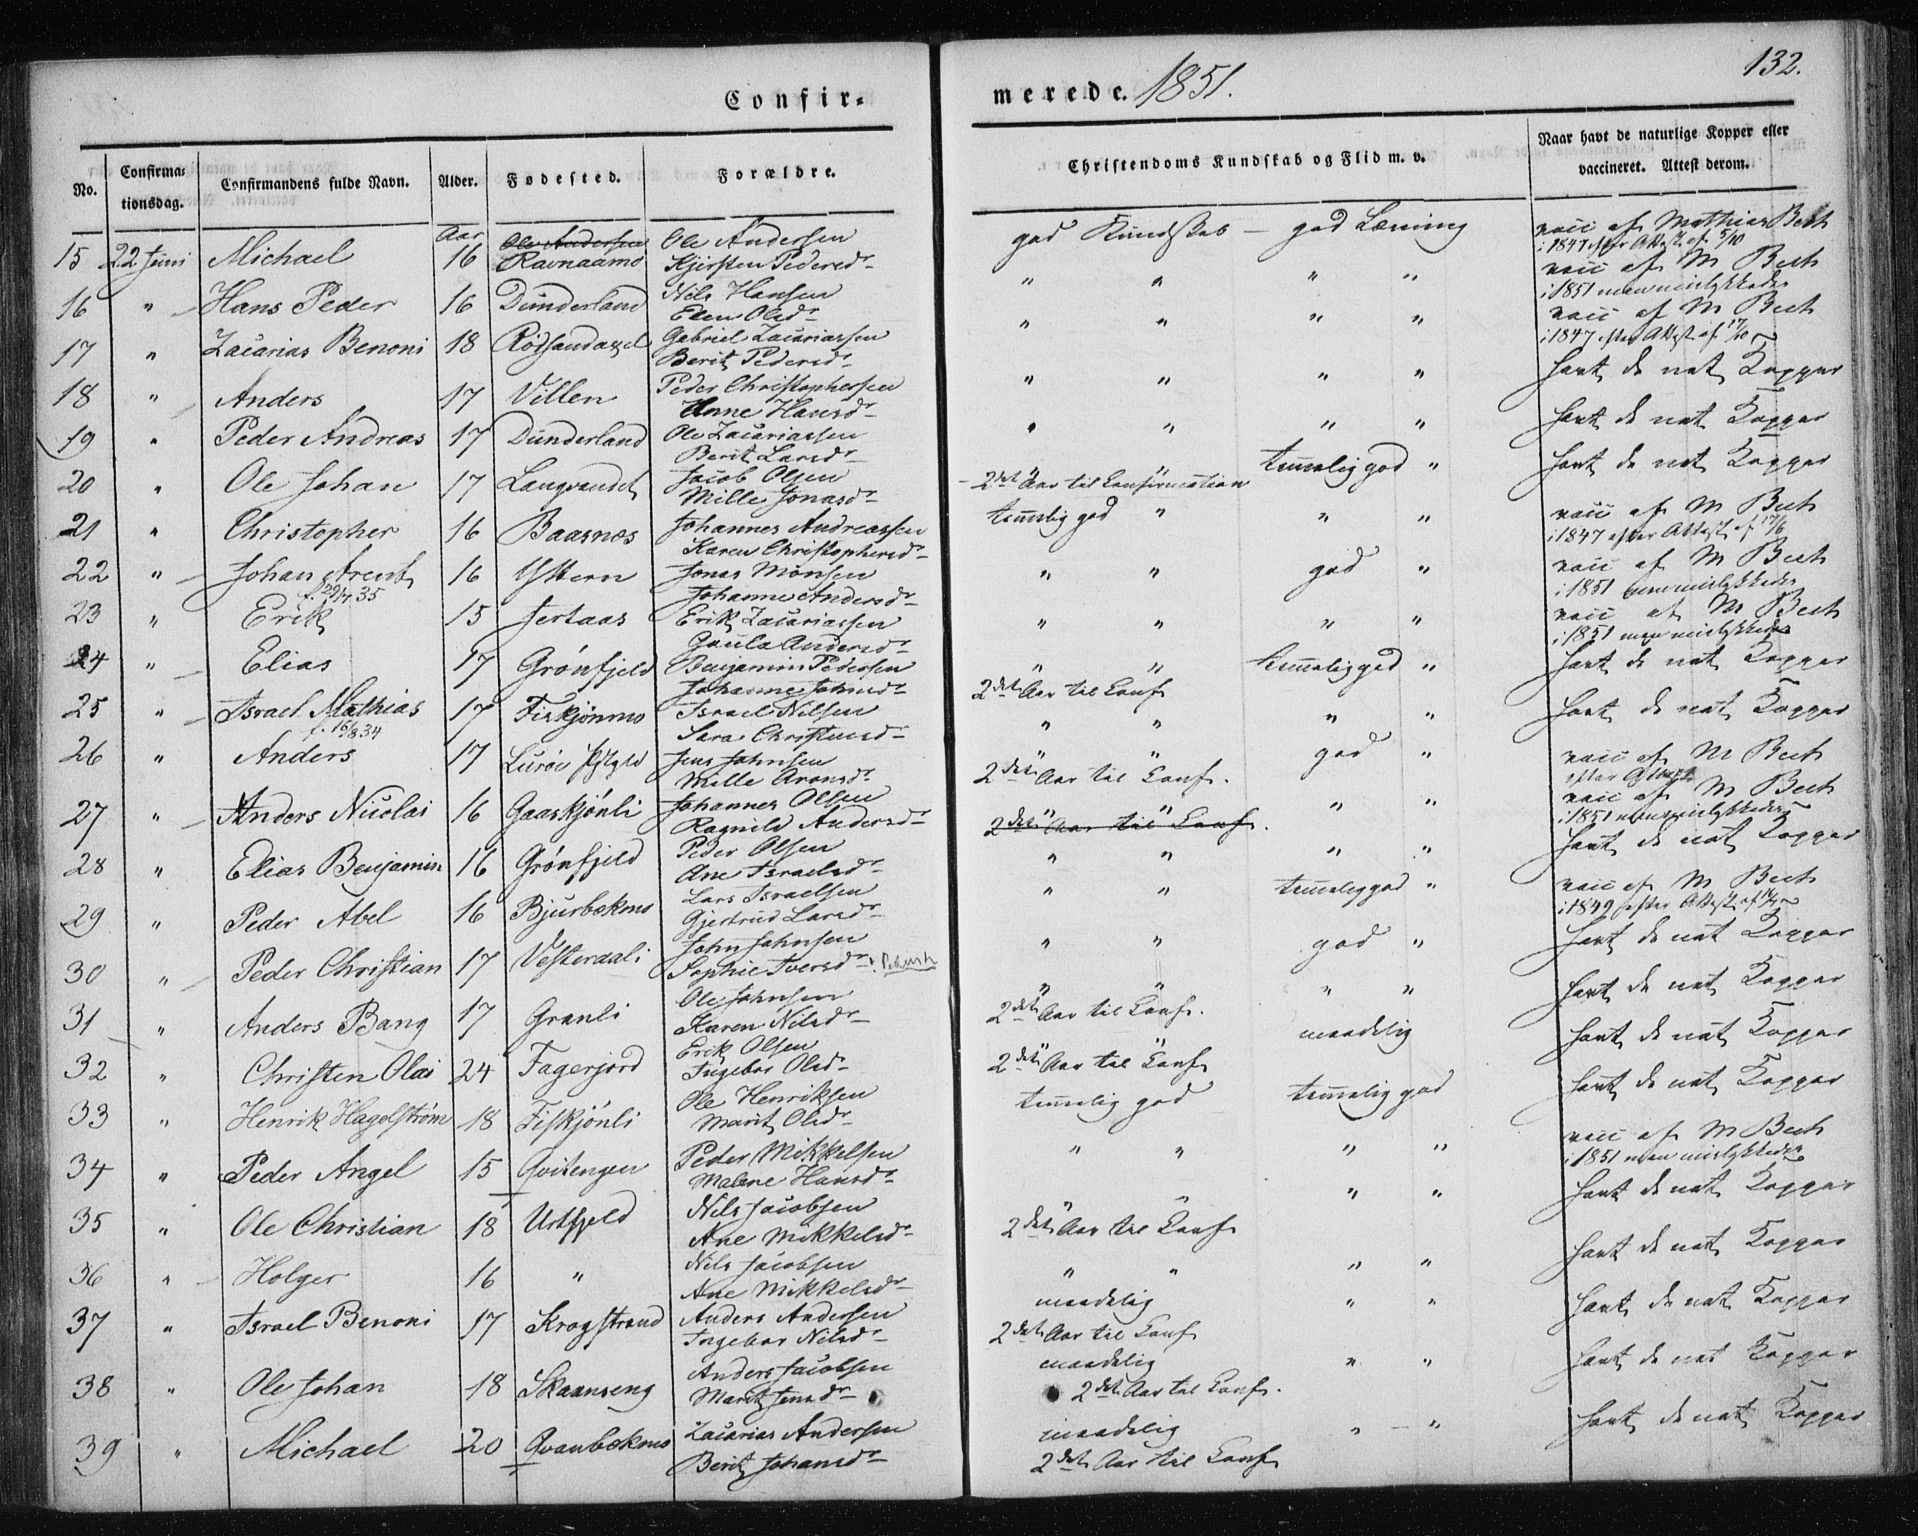 132.
Confirmerede. 1851.
No. Confirmationsdag. Confirmandens fulde Navn. Alder. Fødested. Forældre. Christendoms Kundskab og Flid m. v. Naar havt de naturlige Kopper eller vaccineret. Attest derom.
Aar
15 22 Juni Michael 16 Ole Andersen Ravnaamo Ole Andersen god Kundskab — god Læsning vacc af Mathias Bech
Kjersten Pedersdr i 1847 efter Attest af 5/10
16 " Hans Peder 16 Dunderland Nils Hansen " " " " vacc af M Bech
Elen Olsdr i 1851 men mislykkedes
17 " Zacarias Benoni 18 Rødsandagel Gabriel Zacariassen " " " " vacc af M Bech
Berit Pedersdr i 1847 efter Attest af 17/10
18 " Anders 17 Villen Peder Christophersen " " " " havt de nat Kopper
Anne Hansdr
19 " Peder Andreas 17 Dunderland Ole Zacariassen " " " " havt de nat Kopper
Berit Larsdr
20 " Ole Johan 17 Langvandet Jacob Olsen " " temmelig god " havt de nat Kopper
Mille Jonasdr 2det Aar til Confirmation
21 " Christopher 16 Baasnes Johannes Andreassen temmelig god " " " vacc af M Bech
Karen Christophersdr i 1847 efter Attest af 17/6
22 " Johan Arent 16 Ystern Jonas Monsen " " god " vacc af M Bech
f. 29/4 35 Johanne Andersdr i 1851 men mislykkedes
23 " Erik 15 Jertaas Erik Zacariassen " " " " vacc af M Bech
Paula Andersdr i 1851 men mislykkedes
24 " Elias 17 Grønfjeld Benjamin Pedersen " " temmelig god " havt de nat Kopper
Johanne Johnsdr 2det Aar til Conf
25 " Israel Mathias 17 Fiskjønmo Israel Nilsen " " " " havt de nat Kopper
f. 16/8 34 Sara Christensdr
26 " Anders 17 Lurøe Jens Johnsen " " god " vacc af M Bech
Mille Aronsdr 2det Aar til Conf. efter Attest
27 " Anders Nicolai 16 Gaaskjønli Johannes Olsen " " " " vacc af M Bech
Ragnild Andersdr 2det Aar til Conf. i 1851 men mislykkedes
28 " Elias Benjamin 16 Grønfjeld Peder Olsen " " " " havt de nat Kopper
Ane Israelsdr
29 " Peder Abel 16 Bjurbækmo Lars Israelsen " " temmelig god " vacc af M Bech
Gjertrud Larsdr i 1849 efter Attest af
30 " Peder Christian 17 Vesteraali John Johnsen " " god " havt de nat Kopper
Sophie Iversdr
31 " Anders Bang 17 Granli Ole Johnsen " " " " havt de nat Kopper
Karen Nilsdr 2det Aar til Conf.
32 " Christen Olai 24 Fagerjord Erik Olsen " " maadelig havt de nat Kopper
Ingebor Olsdr 2det Aar til Conf
33 " Henrik Hagelstrøm 18 Fiskjønli Ole Henriksen temmelig god temmelig god havt de nat Kopper
Marit Olsdr
34 " Peder Angel 15 Qvitengen Peder Mikkelsen " " " " vacc af M Bech
Malene Hansdr i 1851 men mislykkedes
35 " Ole Christian 18 Urtfjeld Nils Jacobsen " " " " havt de nat Kopper
Ane Mikkelsdr 2det Aar til Conf
36 " Holger 16 " Nils Jacobsen " " " " havt de nat Kopper
Ane Mikkelsdr
37 " Israel Benoni 17 Krogstrand Anders Andersen maadelig " " havt de nat Kopper
Ingebor Nilsdr 2det Aar til Conf
38 " Ole Johan 18 Skaanseng Anders Jacobsen maadelig " " havt de nat Kopper
Marit Jensdr 2det Aar til Conf.
39 " Michael 20 Qvanbækmo Zacarias Andersen maadelig " " havt de nat Kopper
Berit Johansdr 2det Aar til Conf